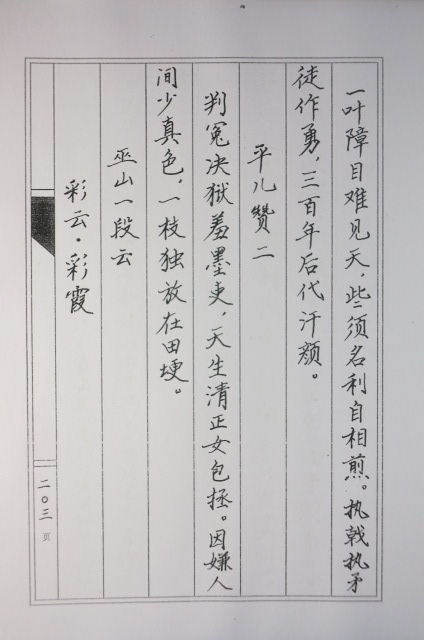 一叶障目难见天，些须名利自相煎。执戟执矛
徒作勇，三百年后代汗颜。
平儿赞二
判冤决狱羞墨吏，天生清正女包拯。因嫌人
间少真色，一枝独放在田埂。
巫山一段云
彩云·彩霞
二〇三页